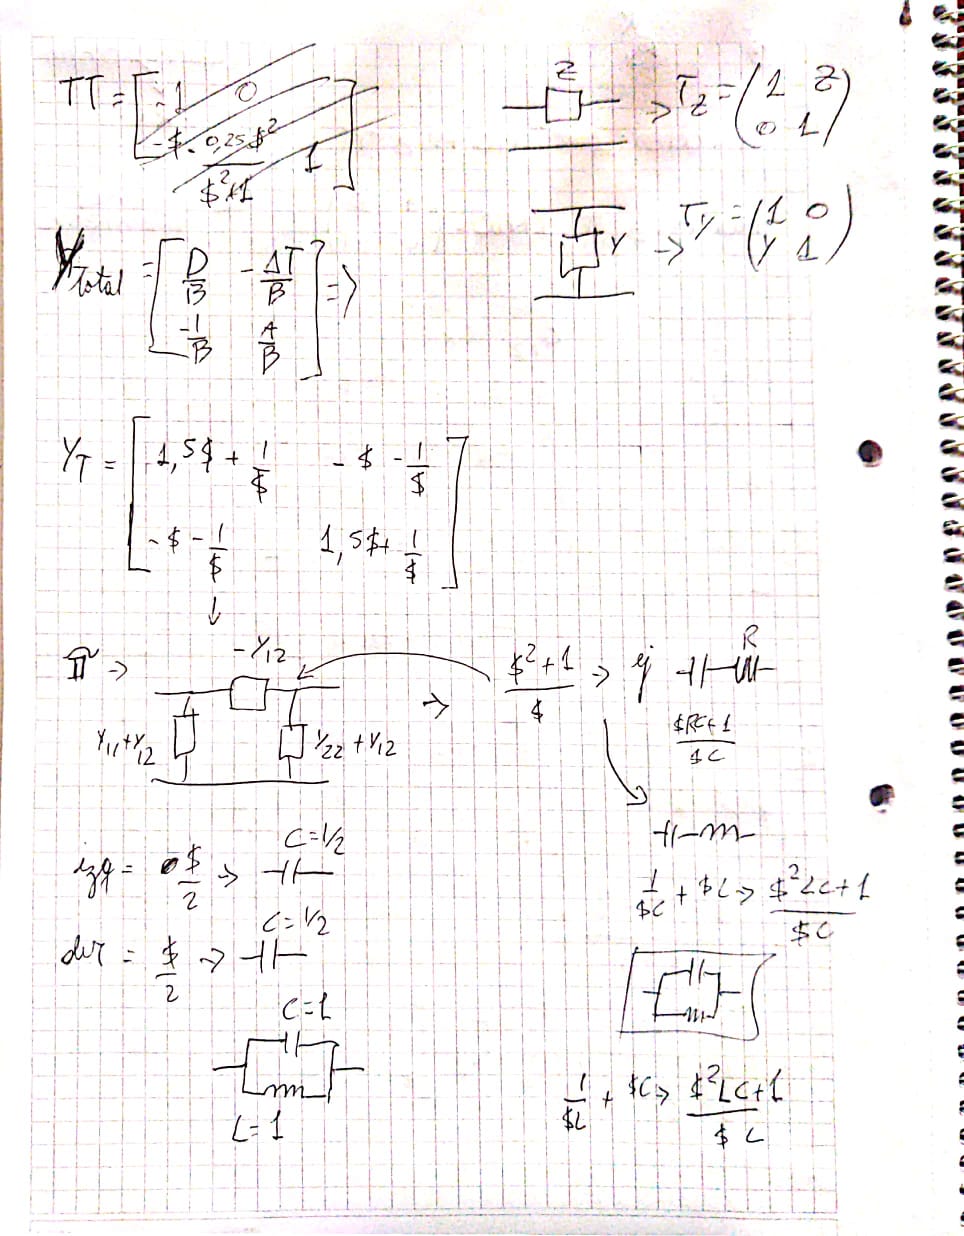 TT = [ -1 0
-$ · 0,25$² / $²+1 1 ]
Z
→ T_Z = ( 1 Z
0 1 )
Y → T_Y = ( 1 0
Y 1 )
Y_Total = [ D/B -ΔT/B
-1/B A/B ] ⇒
Y_T = [ 1,5$ + 1/$ -$ - 1/$
-$ - 1/$ 1,5$ + 1/$ ]
↓
π →
-Y12
Y11+Y12
Y22+Y12
→ $²+1 / $ → ej
R
$RC+1 / $C
1/$C + $L → $²LC+1 / $C
izq = $/2 → C=1/2
der = $/2 → C=1/2
C=1
L=1
1/$L + $C → $²LC+1 / $L